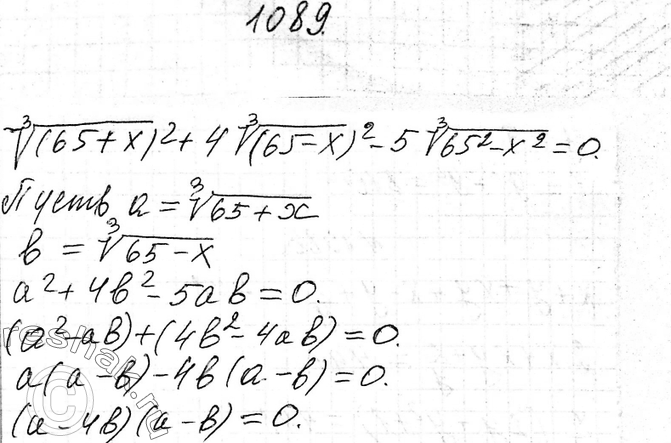 1089.
∛(65+x)² + 4∛(65-x)² - 5∛65²-x² = 0.
Пусть a = ∛65+x
b = ∛65-x
a² + 4b² - 5ab = 0.
(a²-ab)+(4b²-4ab) = 0.
a(a-b)-4b(a-b) = 0.
(a-4b)(a-b) = 0.